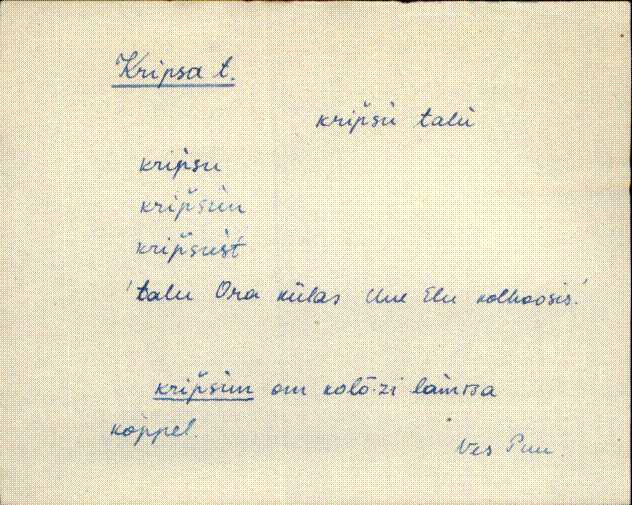 Kripsa t.
krip̆sù talù
kripsu
krip̆sùn
krip̆sùst
'talu Ora külas Uue Elu kolhoosis.'
krip̆sùn om kolō·zi làmba
koppel
Ves Puu.